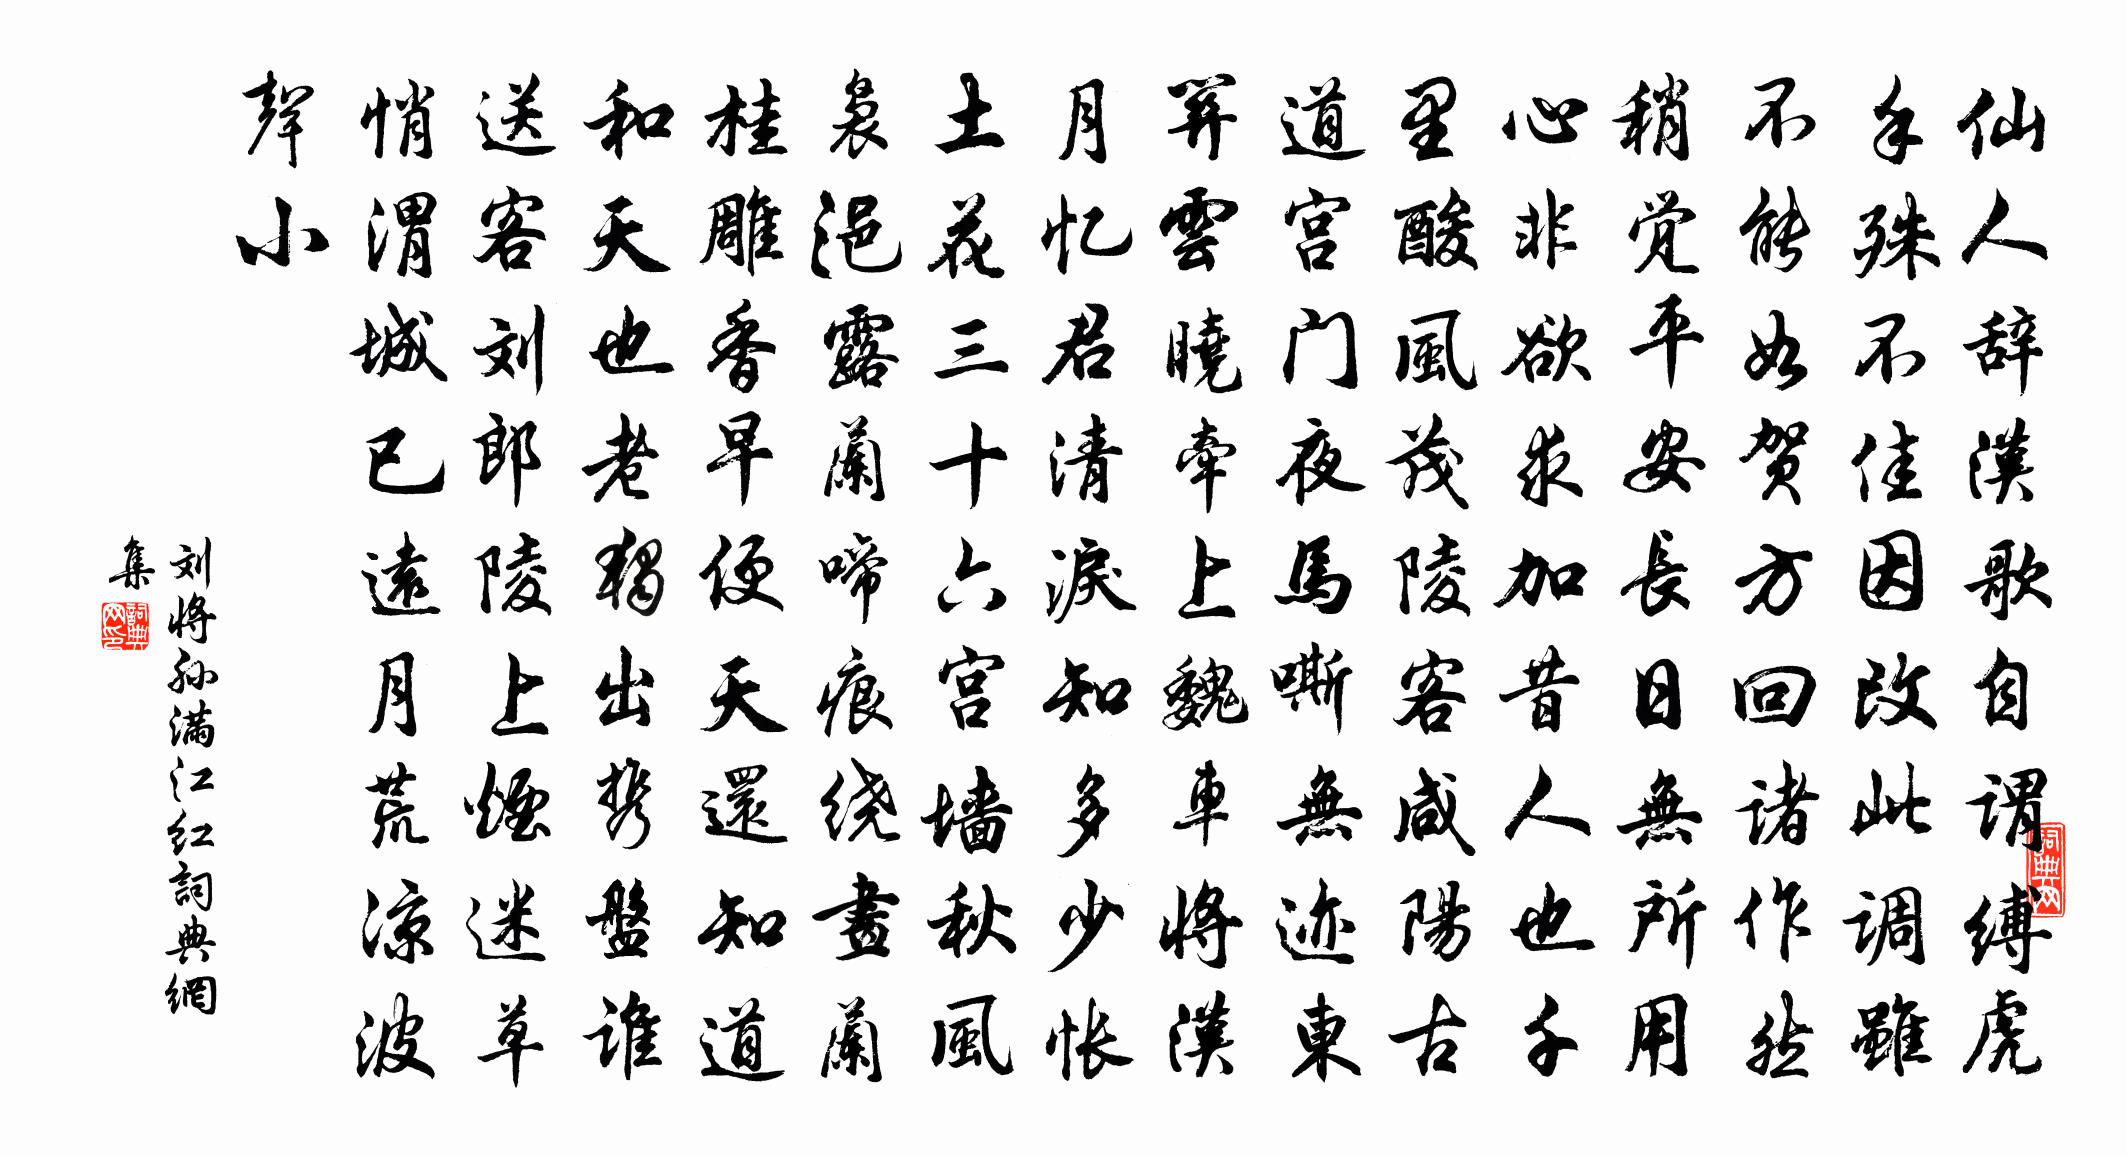 仙人辞漢歌自谓缚虎
手殊不佳因改此调雖
不能如贺方回诸作然
稍觉平安長日無所用
心非欲求加昔人也千
里酸風茂陵客咸陽古
道宫门夜馬嘶無迹東
關雲曉牵上魏車将漢
月忆君清淚知多少怅
土花三十六宫墙秋風
袅浥露蘭啼痕绕畫蘭
桂雕香早便天還知道
和天也老獨出携盤谁
送客刘郎陵上煙迷草
悄渭城已遠月荒凉波
聲小
刘将孙满江红詞典網
集
詞典网印
詞典网